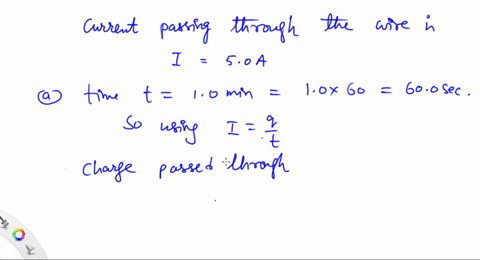 Current passing through the wire is
I = 5.0A
(a) time t = 1.0 min = 1.0 x 60 = 60.0 sec.
So using I = q/t
Charge passed through